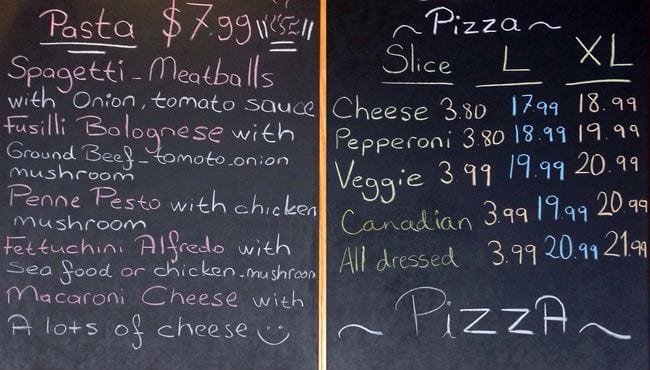 Pasta $7.99
Spagetti - Meatballs
with Onion, tomato sauce
Fusilli Bolognese with
Ground Beef - tomato - onion
mushroom
Penne Pesto with chicken
mushroom
Fettuchini Alfredo with
sea food or chicken - mushroom
Macaroni Cheese with
A lots of cheese
~ Pizza ~
Slice L XL
Cheese 3.80 17.99 18.99
Pepperoni 3.80 18.99 19.99
Veggie 3.99 19.99 20.99
Canadian 3.99 19.99 20.99
All dressed 3.99 20.99 21.99
~ PizzA ~